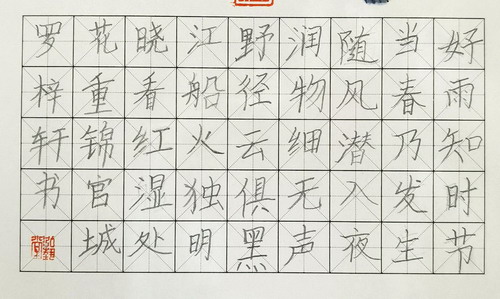 好雨知时节
当春乃发生
随风潜入夜
润物细无声
野径云俱黑
江船火独明
晓看红湿处
花重锦官城
罗梓轩书